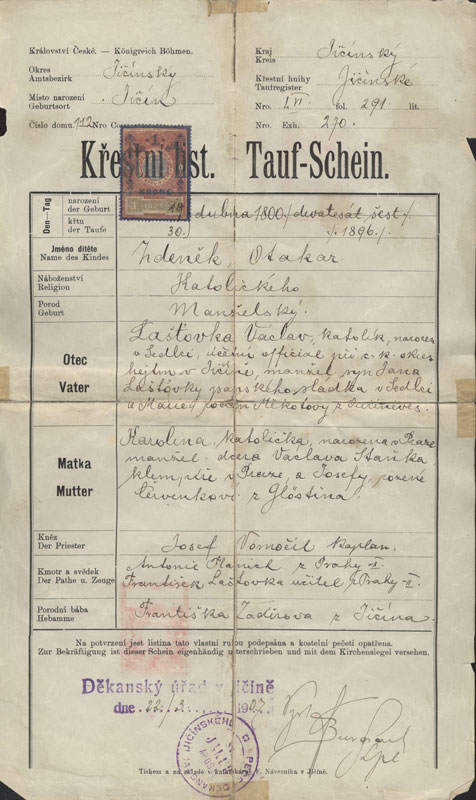 Království České. — Königreich Böhmen.
Okres
Amtsbezirk Jičínsky
Místo narození
Geburtsort Jičín
Číslo domu 112 Nro Co
Kraj
Kreis Jičínský
Křestní knihy
Taufregister Jičínské
Nro. LVI fol. 291. lit.
Nro. Exh. 270.
Křestní list. Tauf-Schein.
Den—Tag
narození
der Geburt 19 dubna 1800/devatesát šest/
křtu
der Taufe 30. /. 1896./
Jméno dítěte
Name des Kindes Zdeněk, Otakar
Náboženství
Religion Katolického
Porod
Geburt Manželský.
Otec
Vater
Laštovka Václav, katolík, narozen
v Sedlci, účetní official při c. k. okres
v Jičíně, manžel. syn Jana
Laštovky panského sládka v Sedlci
a Marie
Matka
Mutter
Karolina, katolička, narozena v Praze
manžel. dcera Václava Staňka
klempíře v Praze, a Josefy, rozené
Červenkovi z
Kněz
Der Priester Josef Vomočil kaplan.
Kmotr a svědek
Der Pathe u. Zeuge
Antonie z Prahy-II.
František Laštovka učitel z Prahy-II.
Porodní bába
Hebamme Františka z Jičína
Na potvrzení jest listina tato vlastní rukou podepsána a kostelní pečetí opatřena.
Zur Bekräftigung ist dieser Schein eigenhändig unterschrieben und mit dem Kirchensiegel versehen.
Děkanský úřad v Jičíně
dne 22./3. 1907.
Tiskem a na skladě v knihtiskárně F. Návesníka v Jičíně.